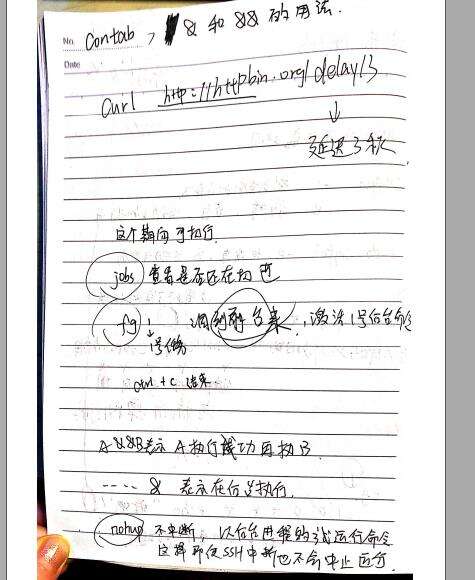 No. Contab, & 和 && 的用法.
Date
Curl http://httpbin.org/delay/3
↓
延迟3秒
这个期间可执行.
jobs 查看是否还在执行
fg 1 调到前台来, 激活1号后台命令
↓
1号任务
ctrl + c 结束.
A && B表示 A执行成功再执B.
---- & 表示在后台执行.
nohup 不中断, 以后台进程的方式运行命令
这样即使SSH中断也不会中止运行.